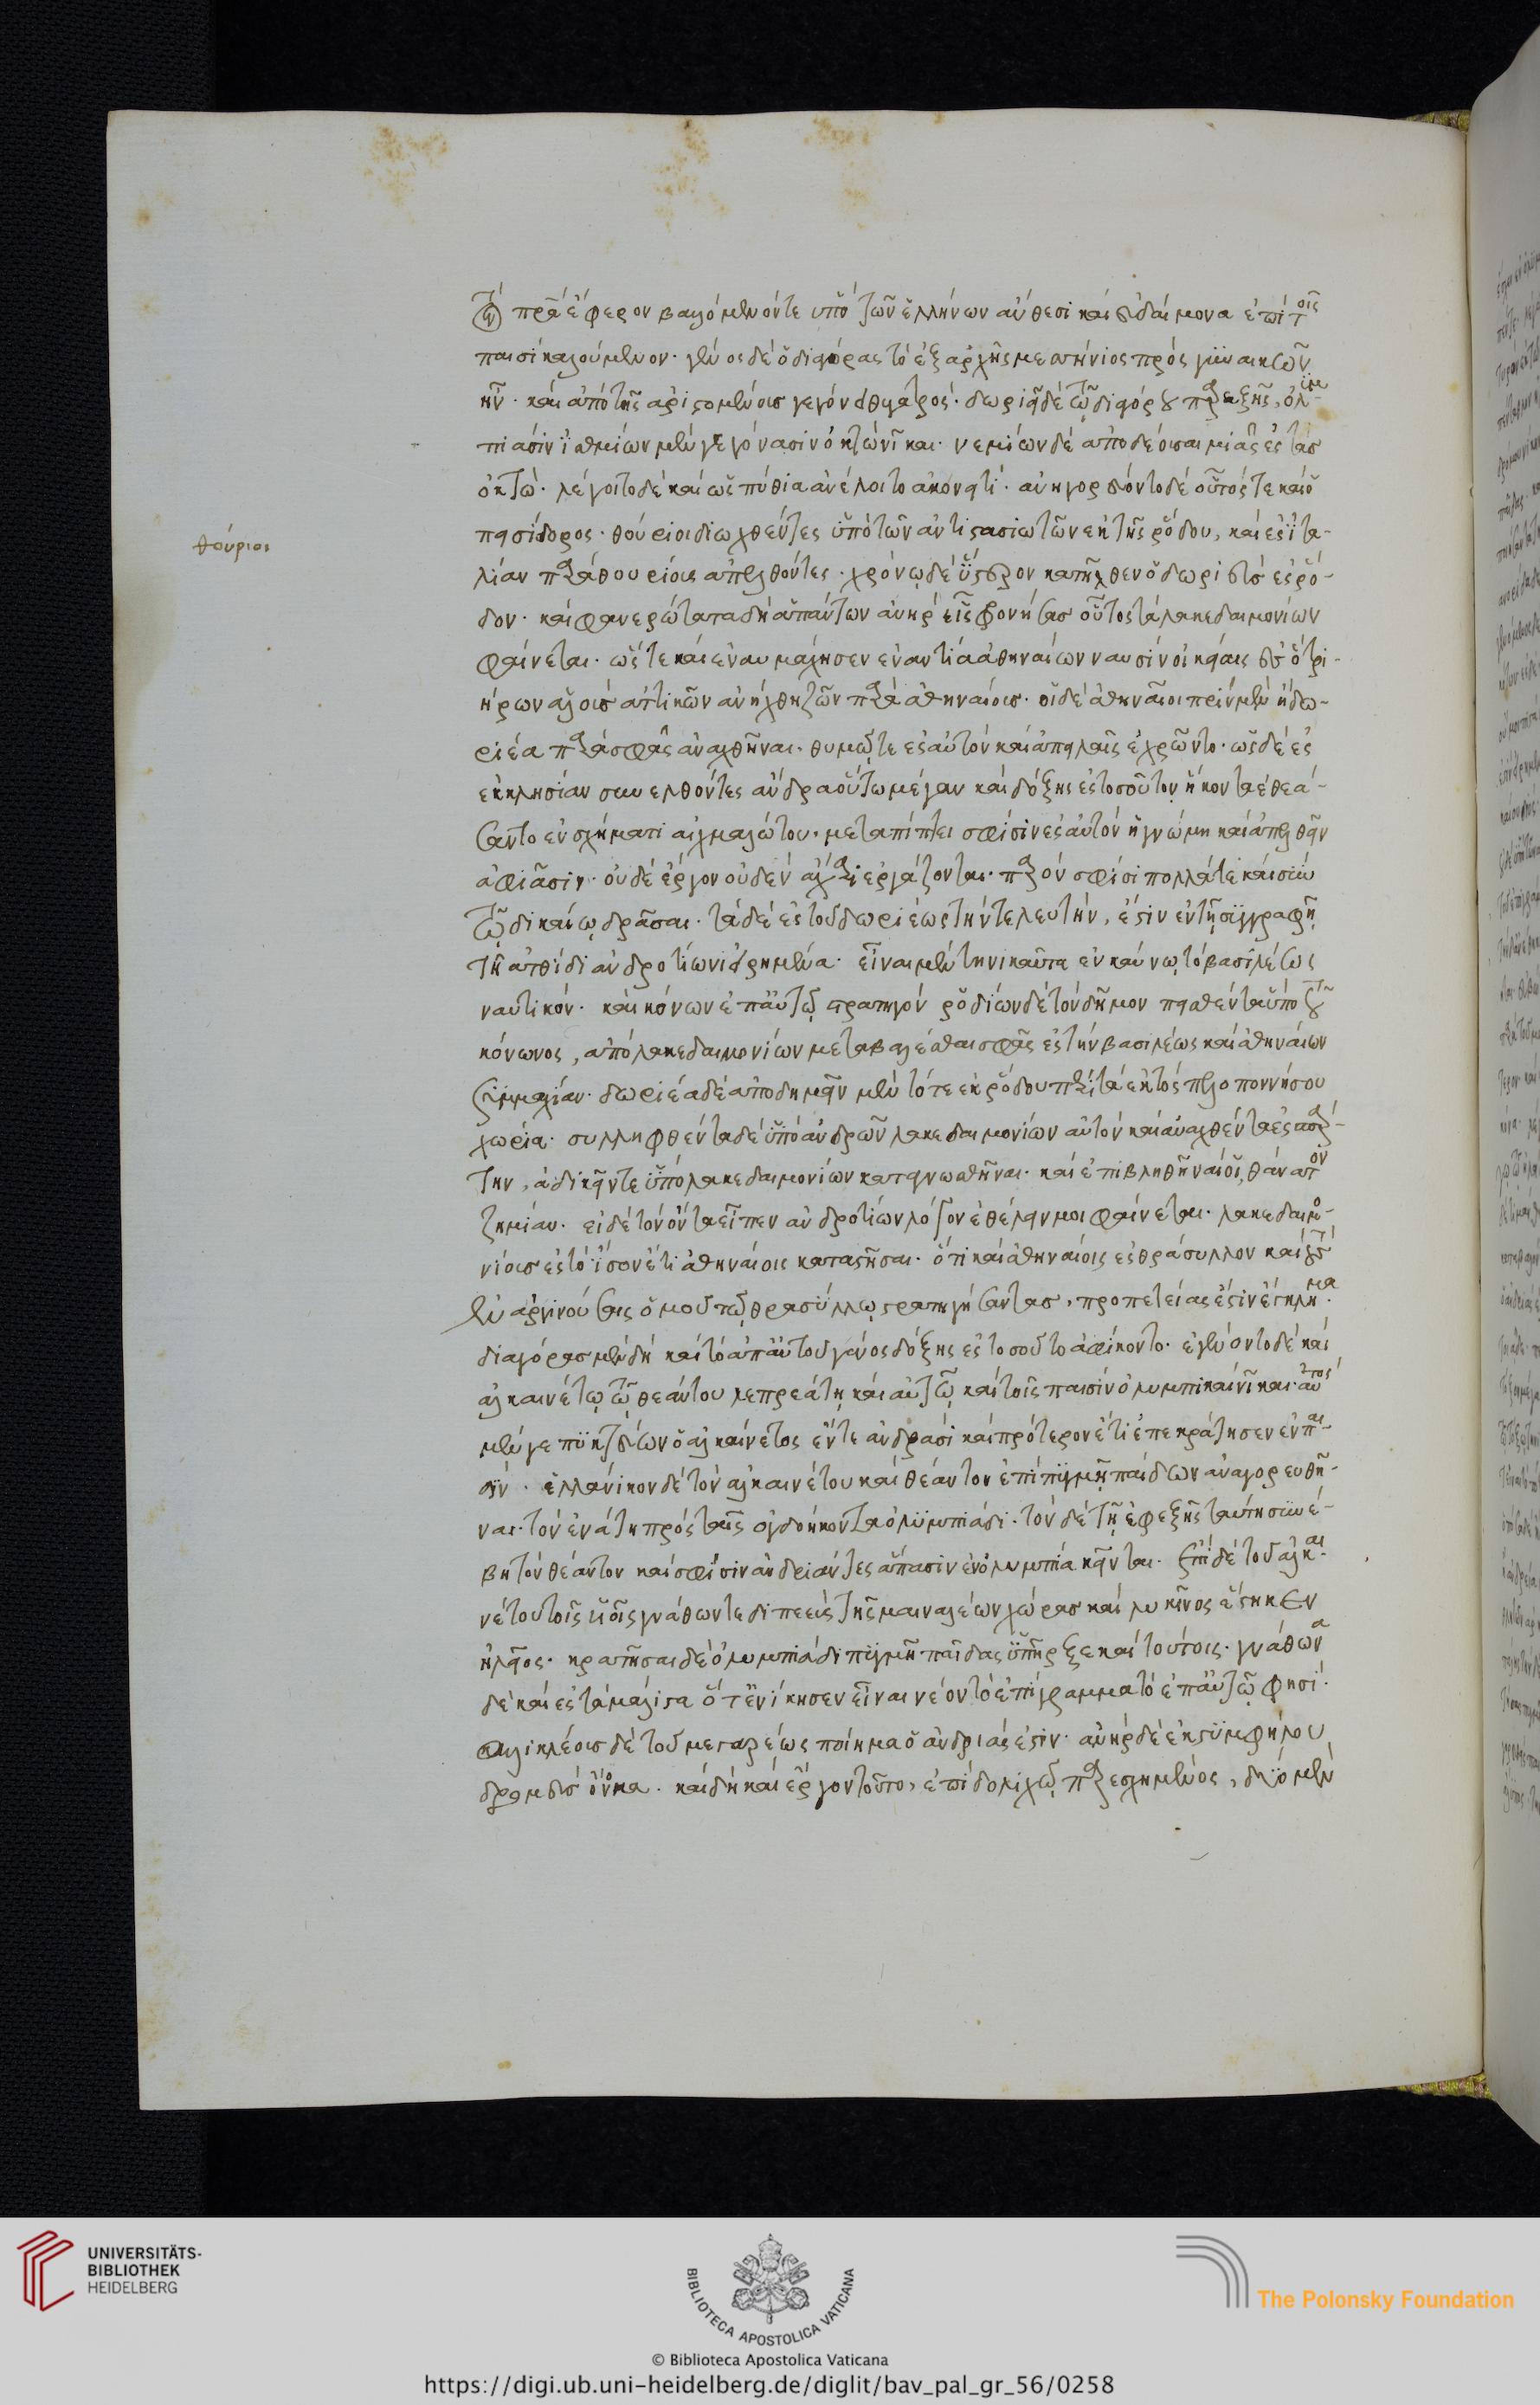 τὸν πρα ἔφερον βαλόμενόν τε ὑπὸ τῶν ἑλλήνων ἄνθεσι καὶ εὐδαίμονα ἐπὶ τοῖς
παισὶ καλούμενον. γένος δὲ ὁ διαγόρας τὸ ἐξ ἀρχῆς μεσσήνιος πρὸς γυναικῶν
ἦν. καὶ ἀπὸ τῆς ἀριστομένους γεγόνει θυγατρός. δωριεῖ δὲ τῷ διαγόρου παρὲξ ἢ ὀλυμ-
πιάσιν ἰσθμίων μὲν γεγόνασιν ὀκτὼ νῖκαι. νεμείων δὲ ἀποδέουσαι μιᾶς ἐς τὰς
ὀκτώ. λέγοιτο δὲ καὶ ὡς πύθια ἀνέλοιτο ἀκονιτί. ἀνηγορεύοντο δὲ οὗτός τε καὶ ὁ
πεισίδορος. θούριοι διωχθέντες ὑπὸ τῶν ἀντιστασιωτῶν ἐκ τῆς ῥόδου, καὶ ἐς ἰτα-
θούριοι
λίαν παρὰ θουρίους ἀπελθόντες. χρόνῳ δὲ ὕστερον κατῆλθεν ὁ δωριεὺς ἐς ῥό-
δον. καὶ φανερώτατα δὴ ἁπάντων ἀνὴρ εἷς φρονήσας οὗτος τὰ λακεδαιμονίων
φαίνεται. ὥστε καὶ ἐναυμάχησεν ἐναντία ἀθηναίων ναυσὶν οἰκείαις ἐς ὃ τρι-
ήρων ἁλοὺς ἀττικῶν ἀνήχθη ζῶν παρὰ ἀθηναίους. οἱ δὲ ἀθηναῖοι πρὶν μὲν ἢ δω-
ριέα παρὰ σφᾶς ἀναχθῆναι. θυμῷ τε ἐς αὐτὸν καὶ ἀπειλαῖς ἐχρῶντο. ὡς δὲ ἐς
ἐκκλησίαν συνελθόντες ἄνδρα οὕτω μέγαν καὶ δόξης ἐς τοσοῦτον ἥκοντα ἐθεά-
σαντο ἐν σχήματι αἰχμαλώτου. μεταπίπτει σφίσιν ἐς αὐτὸν ἡ γνώμη καὶ ἀπελθεῖν
ἀφιᾶσιν. οὐδὲ ἔργον οὐδὲν ἄχαρι ἐργάζονται. παρὸν σφίσι πολλά τε καὶ σὺν
τῷ δικαίῳ δρᾶσαι. τὰ δὲ ἐς τοῦ δωριέως τὴν τελευτήν, ἔστιν ἐν τῇ συγγραφῇ
τῇ ἀτθίδι ἀνδροτίωνι εἰρημένα. εἶναι μὲν τηνικαῦτα ἐν καύνῳ τὸ βασιλέως
ναυτικόν. καὶ κόνων ἐπ' αὐτῷ στρατηγόν ῥοδίων δὲ τὸν δῆμον πεισθέντα ὑπὸ τοῦ
κόνωνος, ἀπὸ λακεδαιμονίων μεταβαλέσθαι σφᾶς ἐς τὴν βασιλέως καὶ ἀθηναίων
συμμαχίαν. δωριέα δὲ ἀποδημεῖν μὲν τότε ἐκ ῥόδου περὶ τὰ ἐκτὸς πελοποννήσου
χωρία. συλληφθέντα δὲ ὑπὸ ἀνδρῶν λακεδαιμονίων αὐτὸν καὶ ἀναχθέντα ἐς σπάρ-
την, ἀδικεῖν τε ὑπὸ λακεδαιμονίων καταγνωσθῆναι. καὶ ἐπιβληθῆναί οἱ, θάνατον
ζημίαν. εἰ δὲ τὸν ὄντα εἶπεν ἀνδροτίων λόγον ἐθέλειν μοι φαίνεται. λακεδαιμο-
νίους ἐς τὸ ἴσον ἔτι ἀθηναίοις καταστῆσαι. ὅτι καὶ ἀθηναίοις ἐς θράσυλλον καὶ τοὺς
ἐν ἀργινούσαις ὁμοῦ τῷ θρασύλλῳ στρατηγήσαντας, προπετείας ἐστὶν ἔγκλημα.
διαγόρας μὲν δὴ καὶ τὸ ἀπ' αὐτοῦ γένος δόξης ἐς τοσοῦτο ἀφίκοντο. ἐγένοντο δὲ καὶ
ἀλκαινέτῳ τῷ θεάντου λεπρεάτῃ καὶ αὐτῷ καὶ τοῖς παισὶν ὀλυμπικαὶ νῖκαι. αὐτὸς
μέν γε πυκτεύων ὁ ἀλκαίνετος ἔν τε ἀνδράσι καὶ πρότερον ἔτι ἐπεκράτησεν ἐν παι-
σίν. ἑλλάνικον δὲ τὸν ἀλκαινέτου καὶ θέαντον ἐπὶ πυγμῇ παίδων ἀναγορευθῆ-
ναι. τὸν ἐνάτῃ πρὸς ταῖς ὀγδοήκοντα ὀλυμπιάδι. τὸν δὲ τῇ ἐφεξῆς ταύτῃ συνέ-
βη τὸν θέαντον καὶ σφίσιν ἀνδριάντες ἅπασιν ἐν ὀλυμπίᾳ κεῖνται. ἐπὶ δὲ τοῦ ἀλκαι-
νέτου τοῖς υἱοῖς γνάθων τε διπεεὺς τῆς μαιναλέων χώρας καὶ λυκῖνος ἕστηκεν
ἠλεῖος. κρατῆσαι δὲ ὀλυμπιάδι πυγμῇ παῖδας ὑπῆρξε καὶ τούτοις. γνάθωνα
δὲ καὶ ἐς τὰ μάλιστα ὅτ' ἐνίκησεν εἶναι νέον τὸ ἐπίγραμμα τὸ ἐπ' αὐτῷ φησί.
καλλικλέους δὲ τοῦ μεγαρέως ποίημα ὁ ἀνδριάς ἐστιν. ἀνὴρ δὲ ἐκ στυμφήλου
δρομεὺς ὄνομα. καὶ δὴ καὶ ἔργον τοῦτο, ἐπὶ δολίχῳ παρεσχημένος, δύο μὲν
UNIVERSITÄTS-
BIBLIOTHEK
HEIDELBERG
BIBLIOTECA APOSTOLICA VATICANA
The Polonsky Foundation
© Biblioteca Apostolica Vaticana
https://digi.ub.uni-heidelberg.de/diglit/bav_pal_gr_56/0258